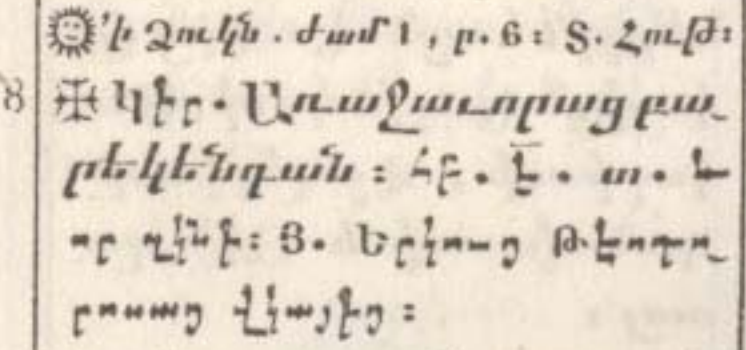 'ի Ձուկն . ժամ 1 , ր. 6 : Տ. Հութ :
Կիր. Առաջաւորաց բա-
րեկենդան : Հբ. Է. տ. և
որ զկնի : Յ. Երկուց Թէոդո-
րոսաց վկայից :